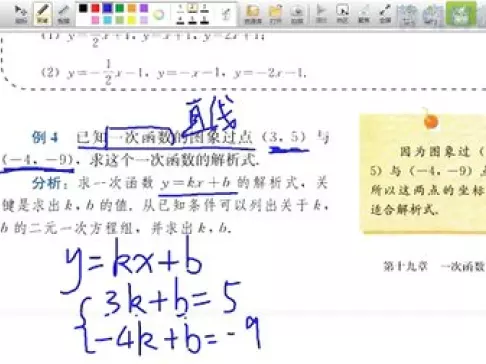 (1) y=1/2x+1, y=x+1, y=2x+1;
(2) y=-1/2x-1, y=-x-1, y=-2x-1.
直线
例4 已知一次函数的图象过点 (3, 5) 与
(-4, -9), 求这个一次函数的解析式.
分析: 求一次函数 y=kx+b 的解析式, 关
键是求出 k, b 的值. 从已知条件可以列出关于 k,
b 的二元一次方程组, 并求出 k, b.
因为图象过 (
5) 与 (-4, -9)
所以这两点的坐标
适合解析式.
第十九章 一次函数
y=kx+b
3k+b=5
-4k+b=-9